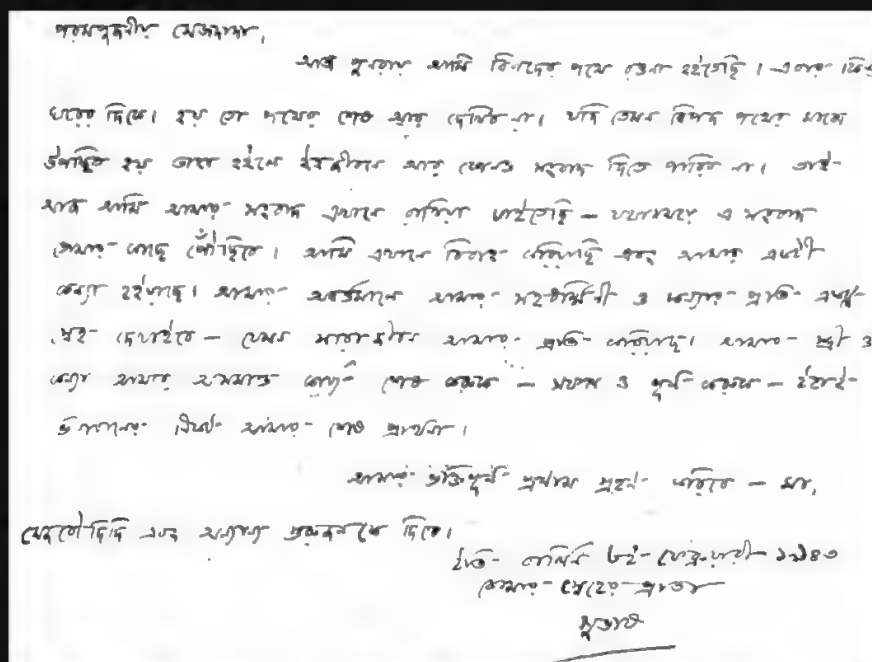 পরমপূজনীয় মেজদাদা,
আজ পুনরায় আমি বিপদের পথে রওনা হইতেছি। এবার কিন্তু
ঘরের দিকে। হয় তো পথের শেষ আর দেখিব না। যদি তেমন বিপদ পথের মাঝে
উপস্থিত হয় তাহা হইলে ইহজীবনে আর কোনও সংবাদ দিতে পারিব না। তাই
আজ আমি আমার সংবাদ এখানে রাখিয়া যাইতেছি – যথাসময়ে এ সংবাদ
তোমার কাছে পৌঁছিবে। আমি এখানে বিবাহ করিয়াছি এবং আমার একটী
কন্যা হইয়াছে। আমার অবর্তমানে আমার সহধর্ম্মিণী ও কন্যার প্রতি একটু
স্নেহ দেখাইবে – যেমন সারাজীবন আমার প্রতি করিয়াছ। আমার স্ত্রী ও
কন্যা আমার অসমাপ্ত কার্য্য শেষ করুক – সফল ও পূর্ণ করুক – ইহাই
ভগবানের নিকট আমার শেষ প্রার্থনা।
আমার ভক্তিপূর্ণ প্রণাম গ্রহণ করিবে – মা,
মেজবৌদিদি এবং অন্যান্য গুরুজনকে দিবে।
ইতি বার্লিন ৮ই ফেব্রুয়ারী ১৯৪৩
তোমার স্নেহের ভ্রাতা
সুভাষ